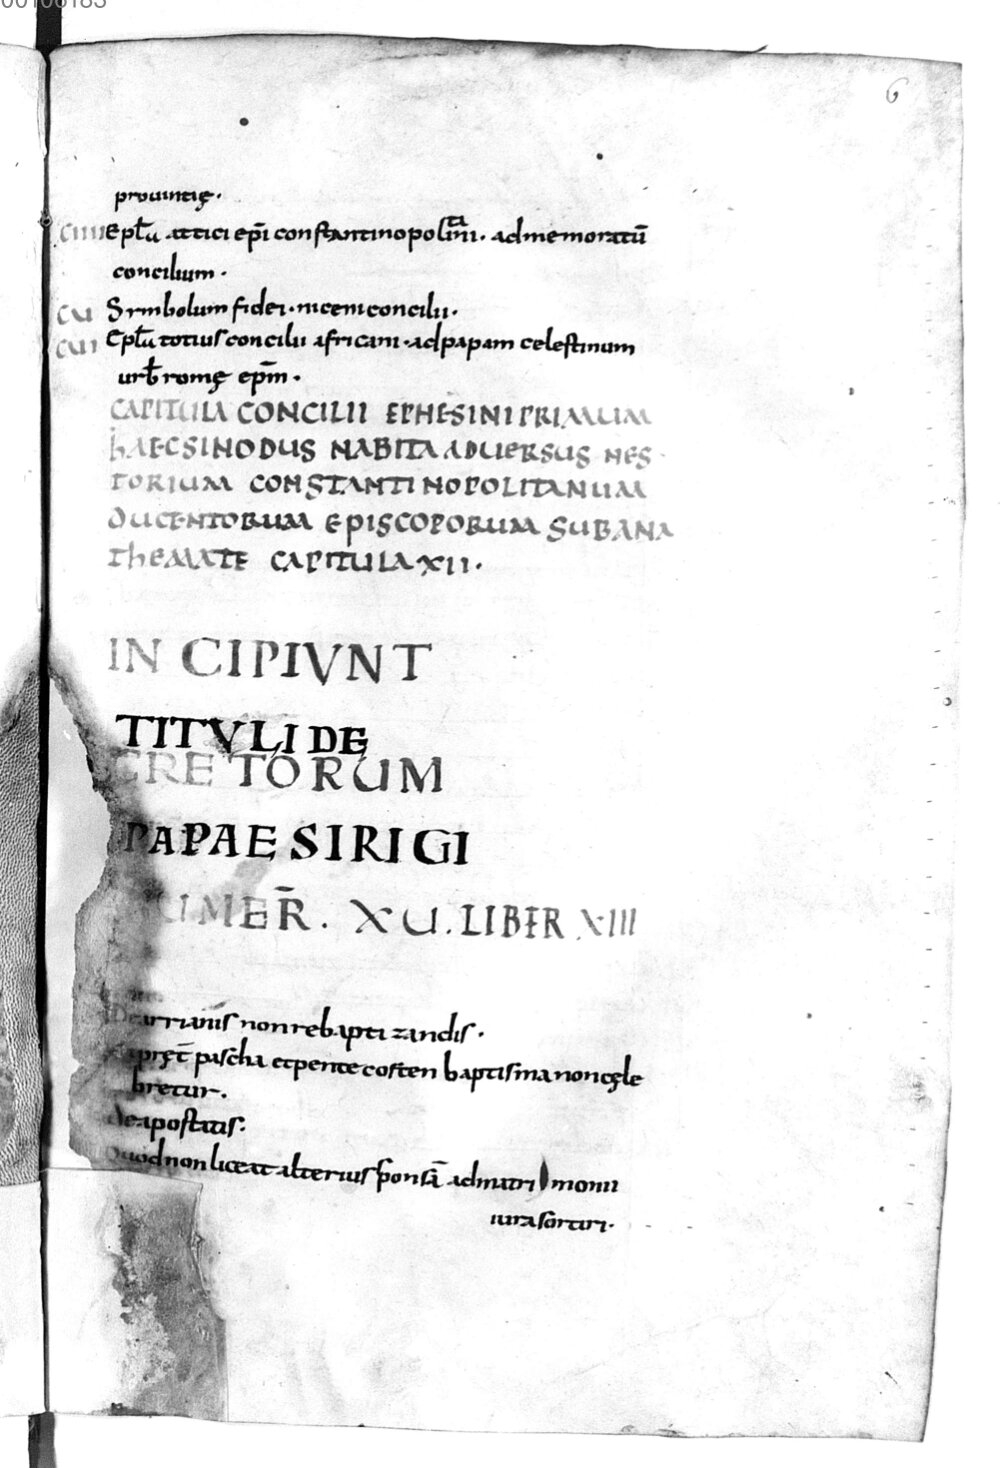 00106183
6
prouintię.
CIIII Epła attici epī constantinopolitini. admemoratū
concilium.
CU Symbolum fidei. niceni concilii.
CUI Epła totius concilii africani. ad papam celestinum
urƀ romę epm̄.
CAPITULA CONCILII EPHESINI PRIMUM
hAEC SINODUS HABITA ADUERSUS NES
TORIUM CONSTANTINOPOLITANUM
DUCENTORUM EPISCOPORUM SUB ANA
ThEMATE CAPITULA XII.
IN CIPIVNT
TITVLI DE
CRETORUM
PAPAE SIRIGI
UMER̄. XU. LIBER XIII
De arrianis non rebaptizandis.
pręt̄ pascha et pentecosten baptisma non cęle
bretur.
de apostatis.
Quod non liceat alterius sponsā ad matrimonii
iura sortiri.